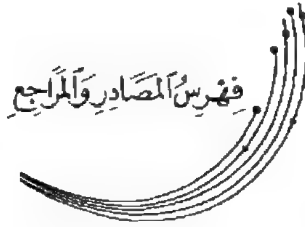 فِهْرِسُ ٱلْمَصَادِرِ وَٱلْمَرَاجِعِ